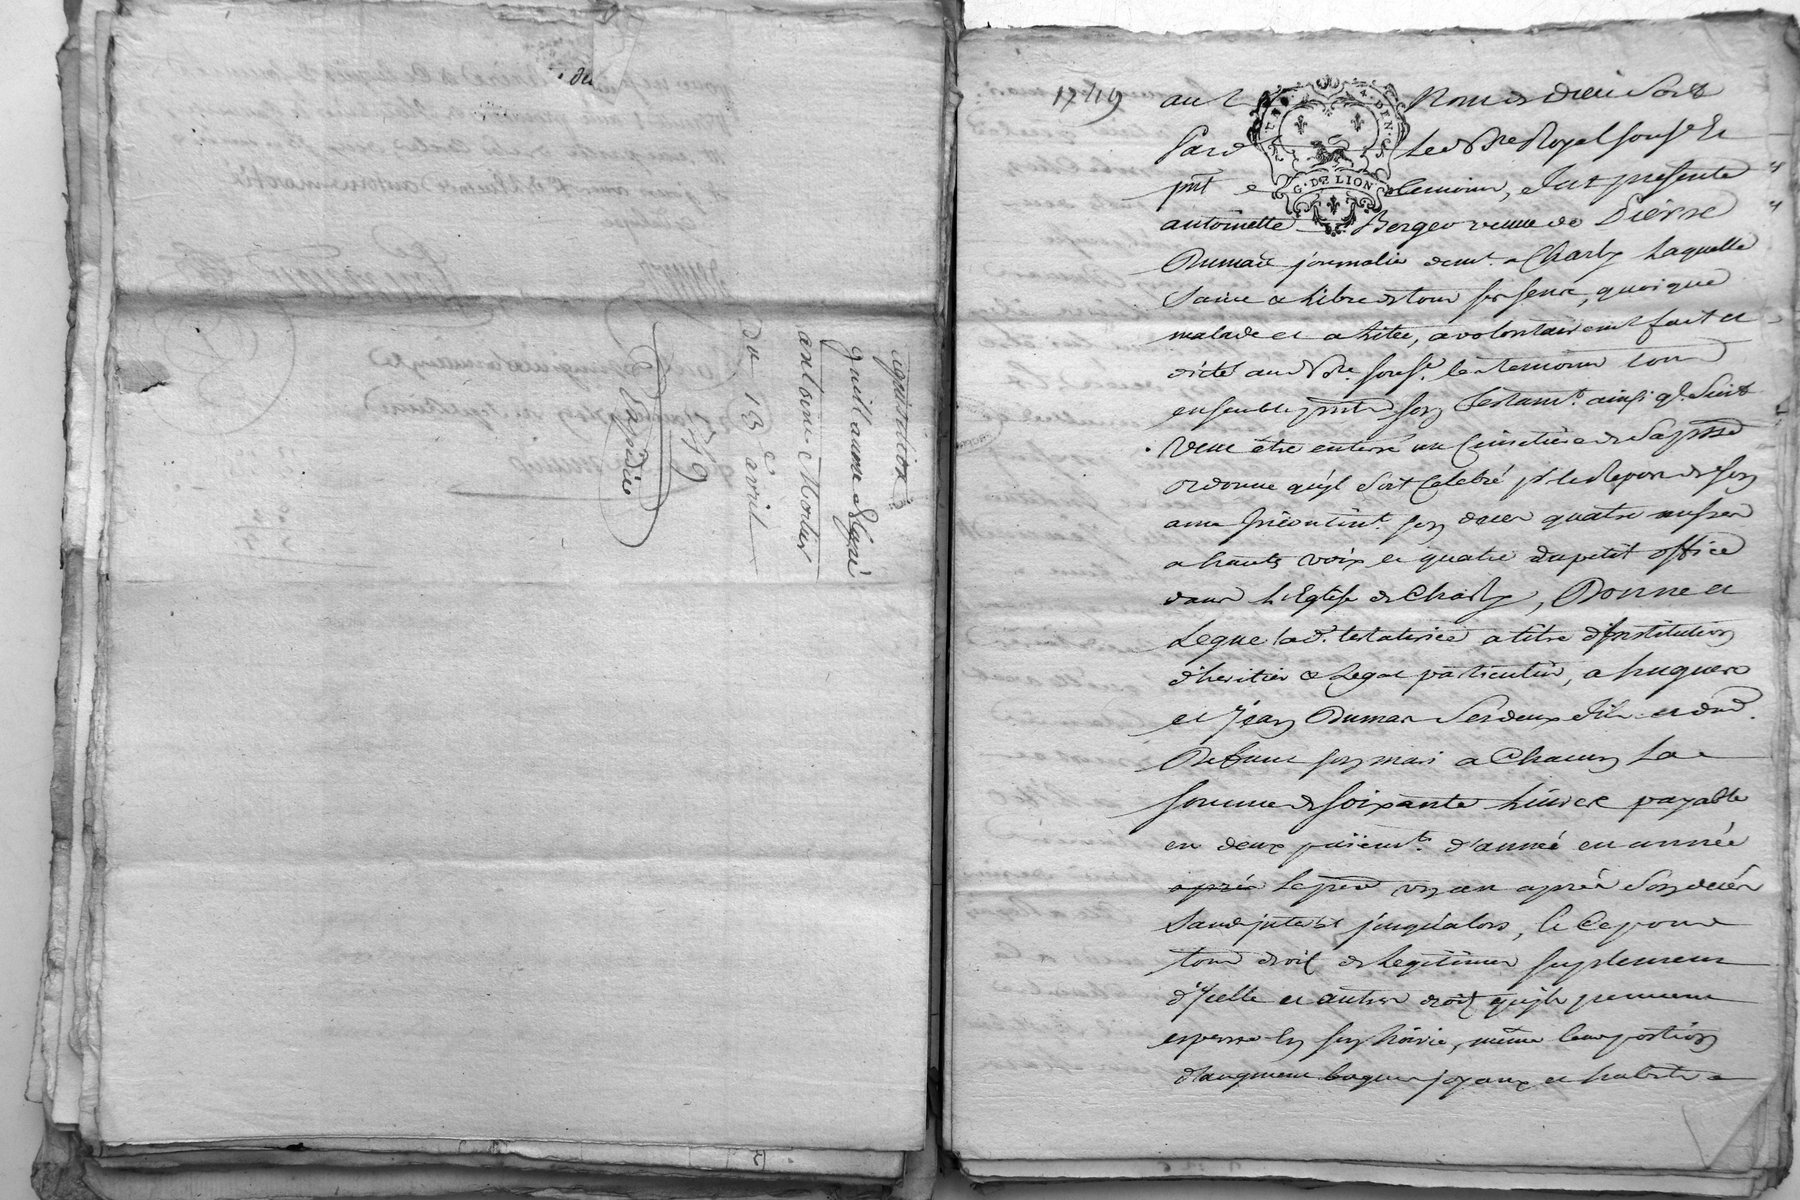 du
aquisition
guillaume
antoine Mortier
du 13e avril
1749
Expédiée
1749
au Nom de dieu soit
Par Le Nre Royal soussé Et
pnt temoins, fut presente
antoinette Berger veuve de Pierre
Dumas journalie demt a Charly Laquelle
saine & libre de tous ses sens, quoique
malade et alitée, a volontairemt fait et
dicté aud Nre soussé les temoins tous
ensemble pnts son Testamt ainsi ql suit
veut être enterré au Cimetiere de sa psse
ordonne qu'jl soit celebré pr le Repos de son
ame Incontint son deces quatre messes
a haute voix et quatre du petit office
dans L'Eglise de Charly, Donne et
Legue lad. testatrice a titre d'Institution
d'heritier & Legat particulier, a hugues
et Jean Dumas ses deux fils et dud.
Defunt son mari a Chacun La
somme de soixante Livres payable
en deux paiemts d'année en année
après Le pred un an après son decés
sans jnterêt jusqu'alors, & Ce pour
tous droit de Legitimes suplement
d'Icelle et autres droit qu'jls peuvent
esperer en son hoirie, même leur portion
d'augment bagues joyaux et habits